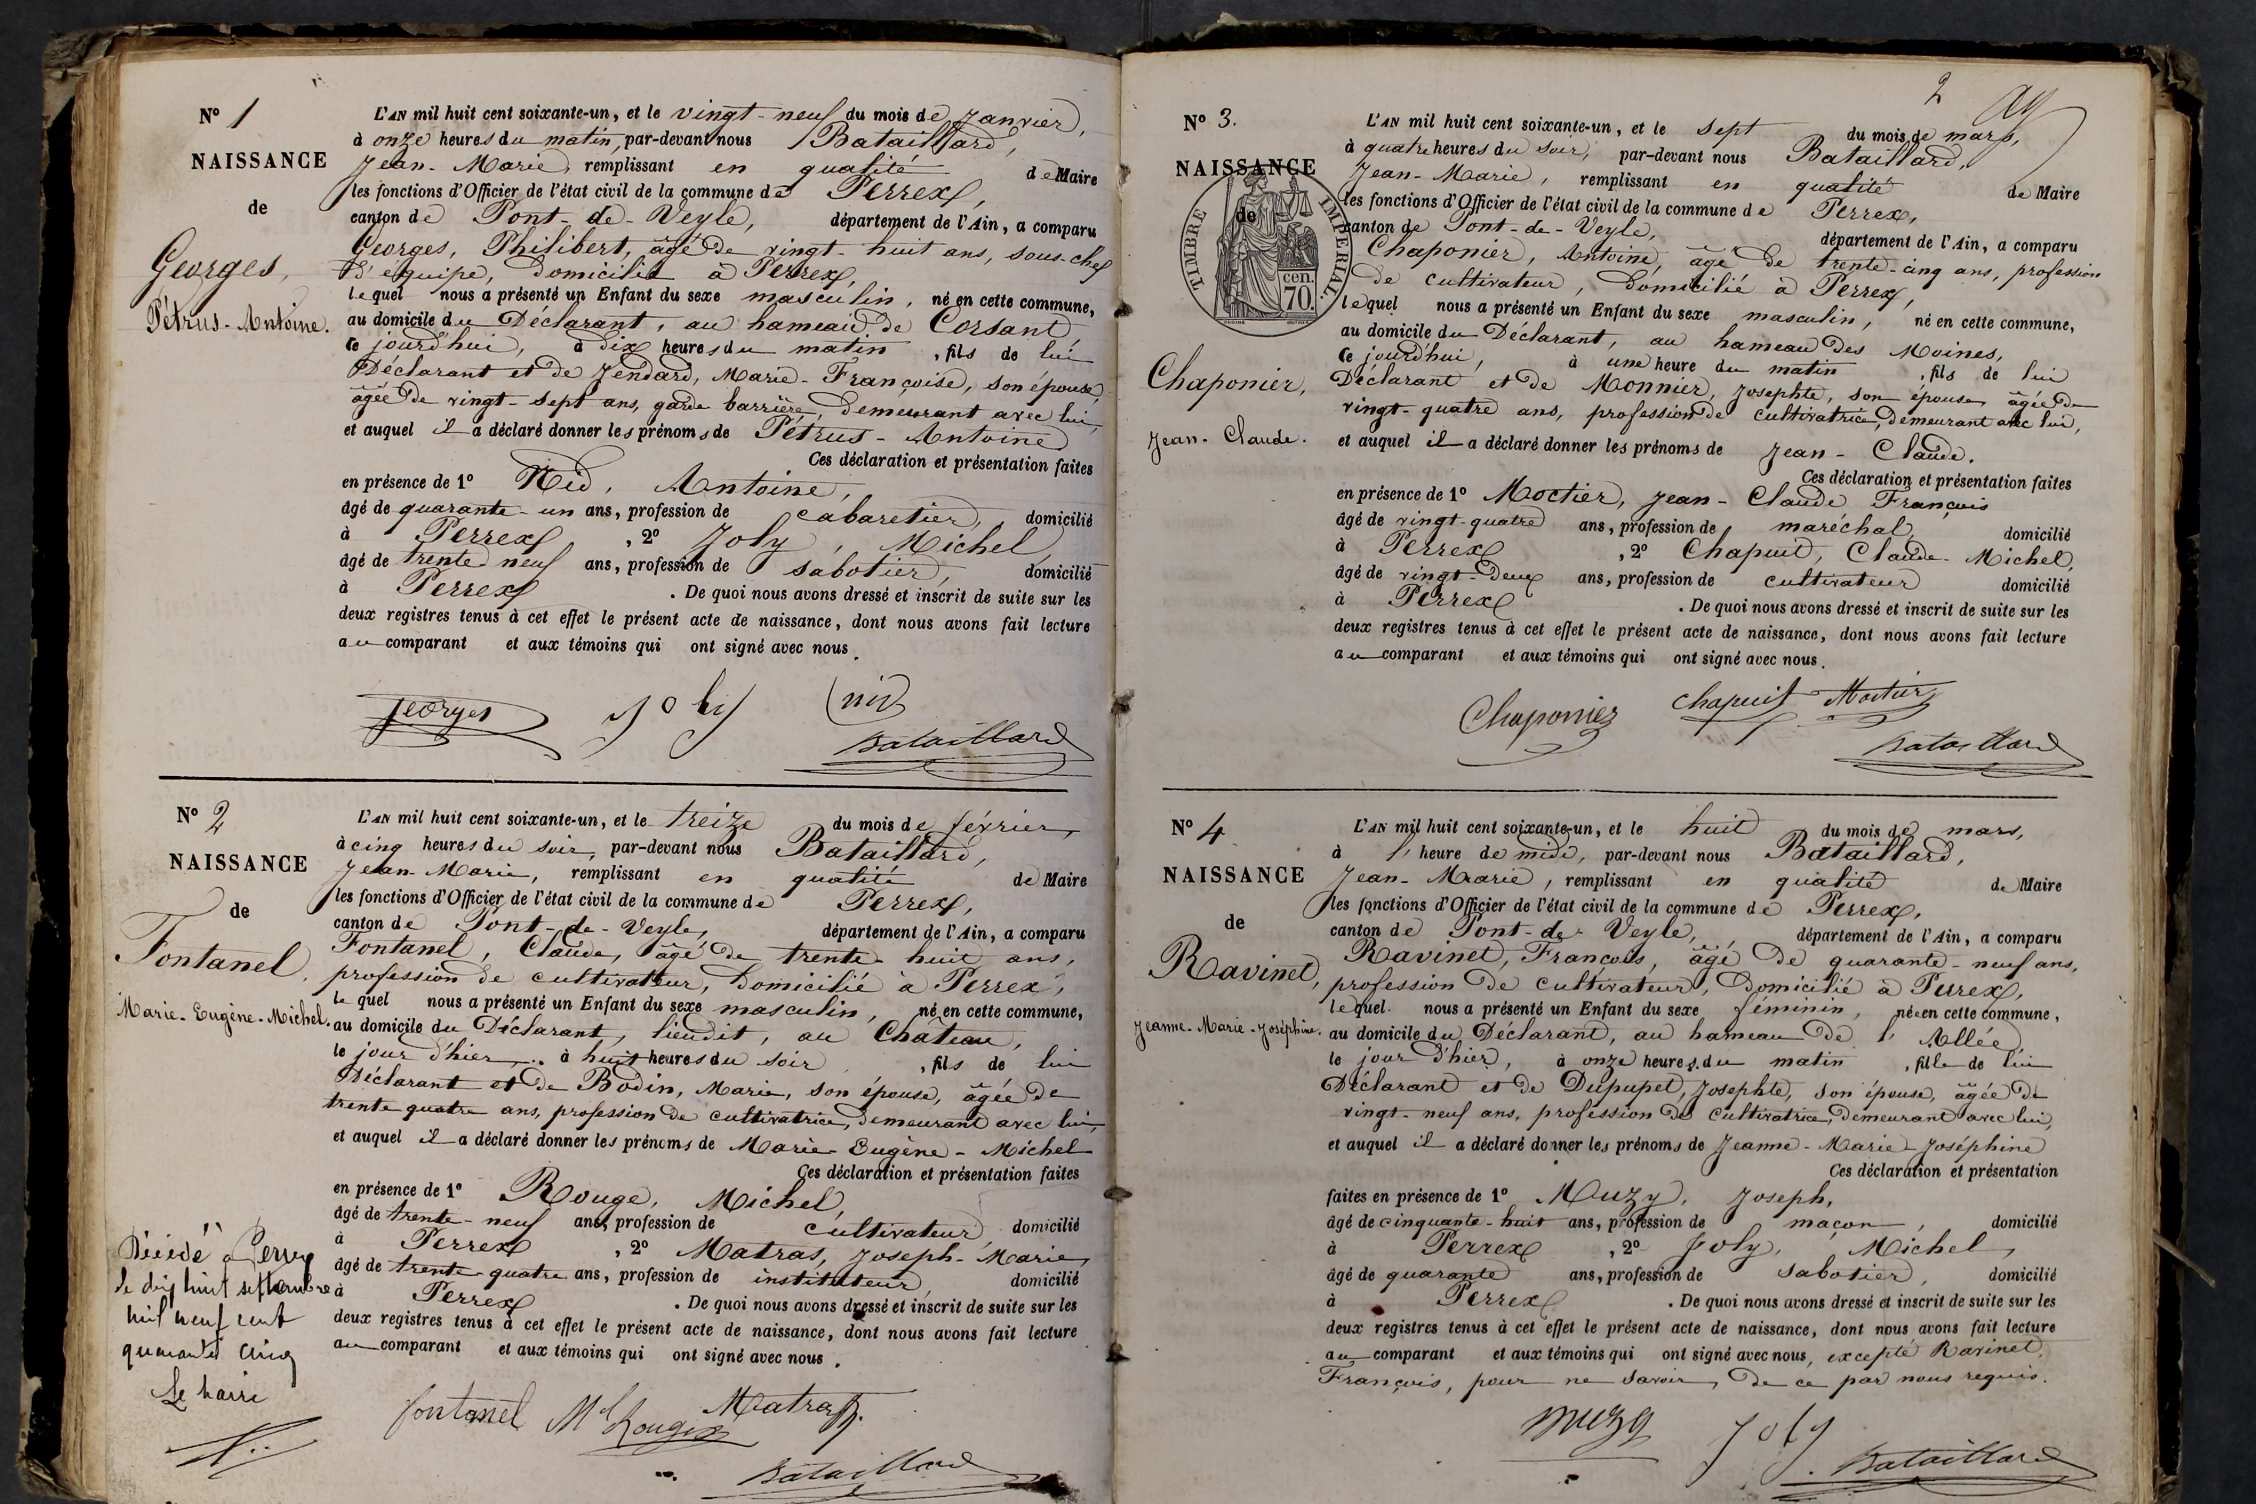 N° 1
NAISSANCE
de
Georges,
Pétrus-Antoine.
L'AN mil huit cent soixante-un, et le vingt-neuf du mois de Janvier,
à onze heures du matin, par-devant nous Bataillard,
Jean-Marie, remplissant en qualité de Maire
les fonctions d'Officier de l'état civil de la commune de Perrex,
canton de Pont-de-Veyle, département de l'Ain, a comparu
Georges, Philibert, âgé de vingt-huit ans, sous-chef
d'équipe, domicilié à Perrex,
lequel nous a présenté un Enfant du sexe masculin, né en cette commune,
au domicile du Déclarant, au hameau de Corsant,
ce jourd'hui, à dix heures du matin, fils de lui
Déclarant et de Jendard, Marie-Françoise, son épouse,
âgée de vingt-sept ans, garde barrière, demeurant avec lui,
et auquel il a déclaré donner les prénoms de Pétrus-Antoine
Ces déclaration et présentation faites
en présence de 1° Nid, Antoine,
âgé de quarante-un ans, profession de cabaretier, domicilié
à Perrex, 2° Joly, Michel,
âgé de trente neuf ans, profession de sabotier, domicilié
à Perrex. De quoi nous avons dressé et inscrit de suite sur les
deux registres tenus à cet effet le présent acte de naissance, dont nous avons fait lecture
au comparant et aux témoins qui ont signé avec nous.
Georges Joly nid
Bataillard
N° 2
NAISSANCE
de
Fontanel,
Marie-Eugène-Michel.
L'AN mil huit cent soixante-un, et le treize du mois de février,
à cinq heures du soir, par-devant nous Bataillard,
Jean-Marie, remplissant en qualité de Maire
les fonctions d'Officier de l'état civil de la commune de Perrex,
canton de Pont-de-Veyle, département de l'Ain, a comparu
Fontanel, Claude, âgé de trente-huit ans,
profession de cultivateur, domicilié à Perrex,
lequel nous a présenté un Enfant du sexe masculin, né en cette commune,
au domicile du Déclarant, lieudit, au Château,
le jour d'hier, à huit heures du soir, fils de lui
Déclarant et de Bodin, Marie, son épouse, âgée de
trente quatre ans, profession de cultivatrice, demeurant avec lui,
et auquel il a déclaré donner les prénoms de Marie-Eugène-Michel
Ces déclaration et présentation faites
en présence de 1° Rouge, Michel,
âgé de trente-neuf ans, profession de cultivateur, domicilié
à Perrex, 2° Matras, Joseph-Marie,
âgé de trente-quatre ans, profession de instituteur, domicilié
à Perrex. De quoi nous avons dressé et inscrit de suite sur les
deux registres tenus à cet effet le présent acte de naissance, dont nous avons fait lecture
au comparant et aux témoins qui ont signé avec nous.
Décédé à Perrex
le dix huit septembre
mil neuf cent
quarante cinq
Le maire
fontanel Mel Rouge Matras
Bataillard
2
N° 3.
NAISSANCE
de
TIMBRE IMPERIAL.
70 cen.
Chaponier,
Jean-Claude.
L'AN mil huit cent soixante-un, et le sept du mois de mars,
à quatre heures du soir, par-devant nous Bataillard,
Jean-Marie, remplissant en qualité de Maire
les fonctions d'Officier de l'état civil de la commune de Perrex,
canton de Pont-de-Veyle, département de l'Ain, a comparu
Chaponier, Antoine, âgé de trente-cinq ans, profession
de cultivateur, domicilié à Perrex,
lequel nous a présenté un Enfant du sexe masculin, né en cette commune,
au domicile du Déclarant, au hameau des Moines,
ce jourd'hui, à une heure du matin, fils de lui
Déclarant et de Monnier, Josephte, son épouse, âgée de
vingt-quatre ans, profession de cultivatrice, demeurant avec lui,
et auquel il a déclaré donner les prénoms de Jean-Claude.
Ces déclaration et présentation faites
en présence de 1° Moctier, Jean-Claude François
âgé de vingt-quatre ans, profession de maréchal, domicilié
à Perrex, 2° Chapuit, Claude-Michel,
âgé de vingt-deux ans, profession de cultivateur domicilié
à Perrex. De quoi nous avons dressé et inscrit de suite sur les
deux registres tenus à cet effet le présent acte de naissance, dont nous avons fait lecture
au comparant et aux témoins qui ont signé avec nous.
Chaponier Chapuit Moctier
Bataillard
N° 4
NAISSANCE
de
Ravinet,
Jeanne-Marie-Joséphine.
L'AN mil huit cent soixante-un, et le huit du mois de mars,
à l'heure de midi, par-devant nous Bataillard,
Jean-Marie, remplissant en qualité de Maire
les fonctions d'Officier de l'état civil de la commune de Perrex,
canton de Pont-de-Veyle, département de l'Ain, a comparu
Ravinet, François, âgé de quarante-neuf ans,
profession de cultivateur, domicilié à Perrex,
lequel nous a présenté un Enfant du sexe féminin, née en cette commune,
au domicile du Déclarant, au hameau de l'Allée,
le jour d'hier, à onze heures du matin, fille de lui
Déclarant et de Dupupet, Josephte, son épouse, âgée de
vingt-neuf ans, profession de cultivatrice, demeurant avec lui,
et auquel il a déclaré donner les prénoms de Jeanne-Marie-Joséphine
Ces déclaration et présentation
faites en présence de 1° Muzy, Joseph,
âgé de cinquante-huit ans, profession de maçon, domicilié
à Perrex, 2° Joly, Michel,
âgé de quarante ans, profession de sabotier, domicilié
à Perrex. De quoi nous avons dressé et inscrit de suite sur les
deux registres tenus à cet effet le présent acte de naissance, dont nous avons fait lecture
au comparant et aux témoins qui ont signé avec nous, excepté Ravinet,
François, pour ne savoir, de ce par nous requis.
muzy Joly
Bataillard